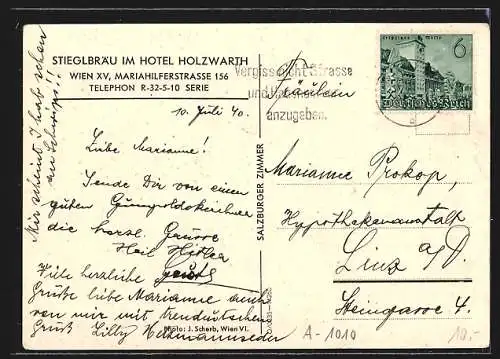 STIEGLBRÄU IM HOTEL HOLZWARTH
WIEN XV, MARIAHILFERSTRASSE 156
TELEPHON R-32-5-10 SERIE
10. Juli 40.
Liebe Marianne!
Sende Dir von einem
guten Gumpoldskirchner
die herzl. Grüsse
Heil Hitler
Viele herzliche
Grüße liebe Marianne auch
von mir mit
Gruß Lilly
Mir scheint I hab schon
an Schwips!!
SALZBURGER ZIMMER
Photo: J. Scherb, Wien VI.
Vergiss nicht Strasse
und
anzugeben.
Leipziger Messe
6
Deutsches Reich
Fräulein
Marianne Prokop,
Hypothekenanstalt
Linz a/D.
Steingasse 4.
A-1010
10.-